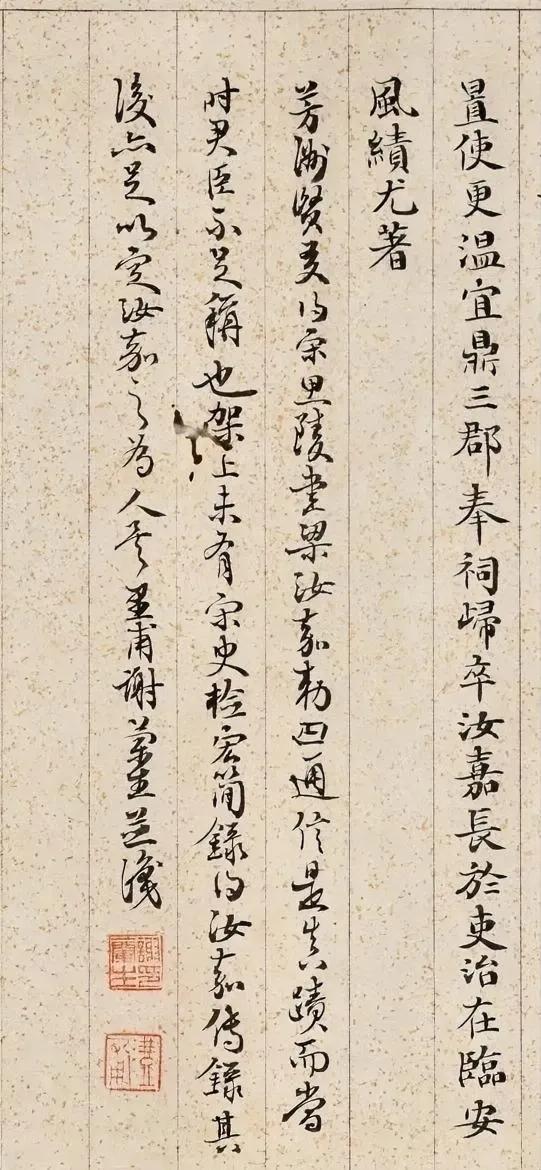 置使更温宜鼎三郡奉祠歸卒汝嘉長於吏治在臨安
風績尤著
芳洲賢友得宋思陵書梁汝嘉勅四通信是真蹟而當
時君臣不足稱也架上未有宋史檢宏簡錄得汝嘉傳錄其
後亦足以定汝嘉之為人矣里甫謝蘭生並識